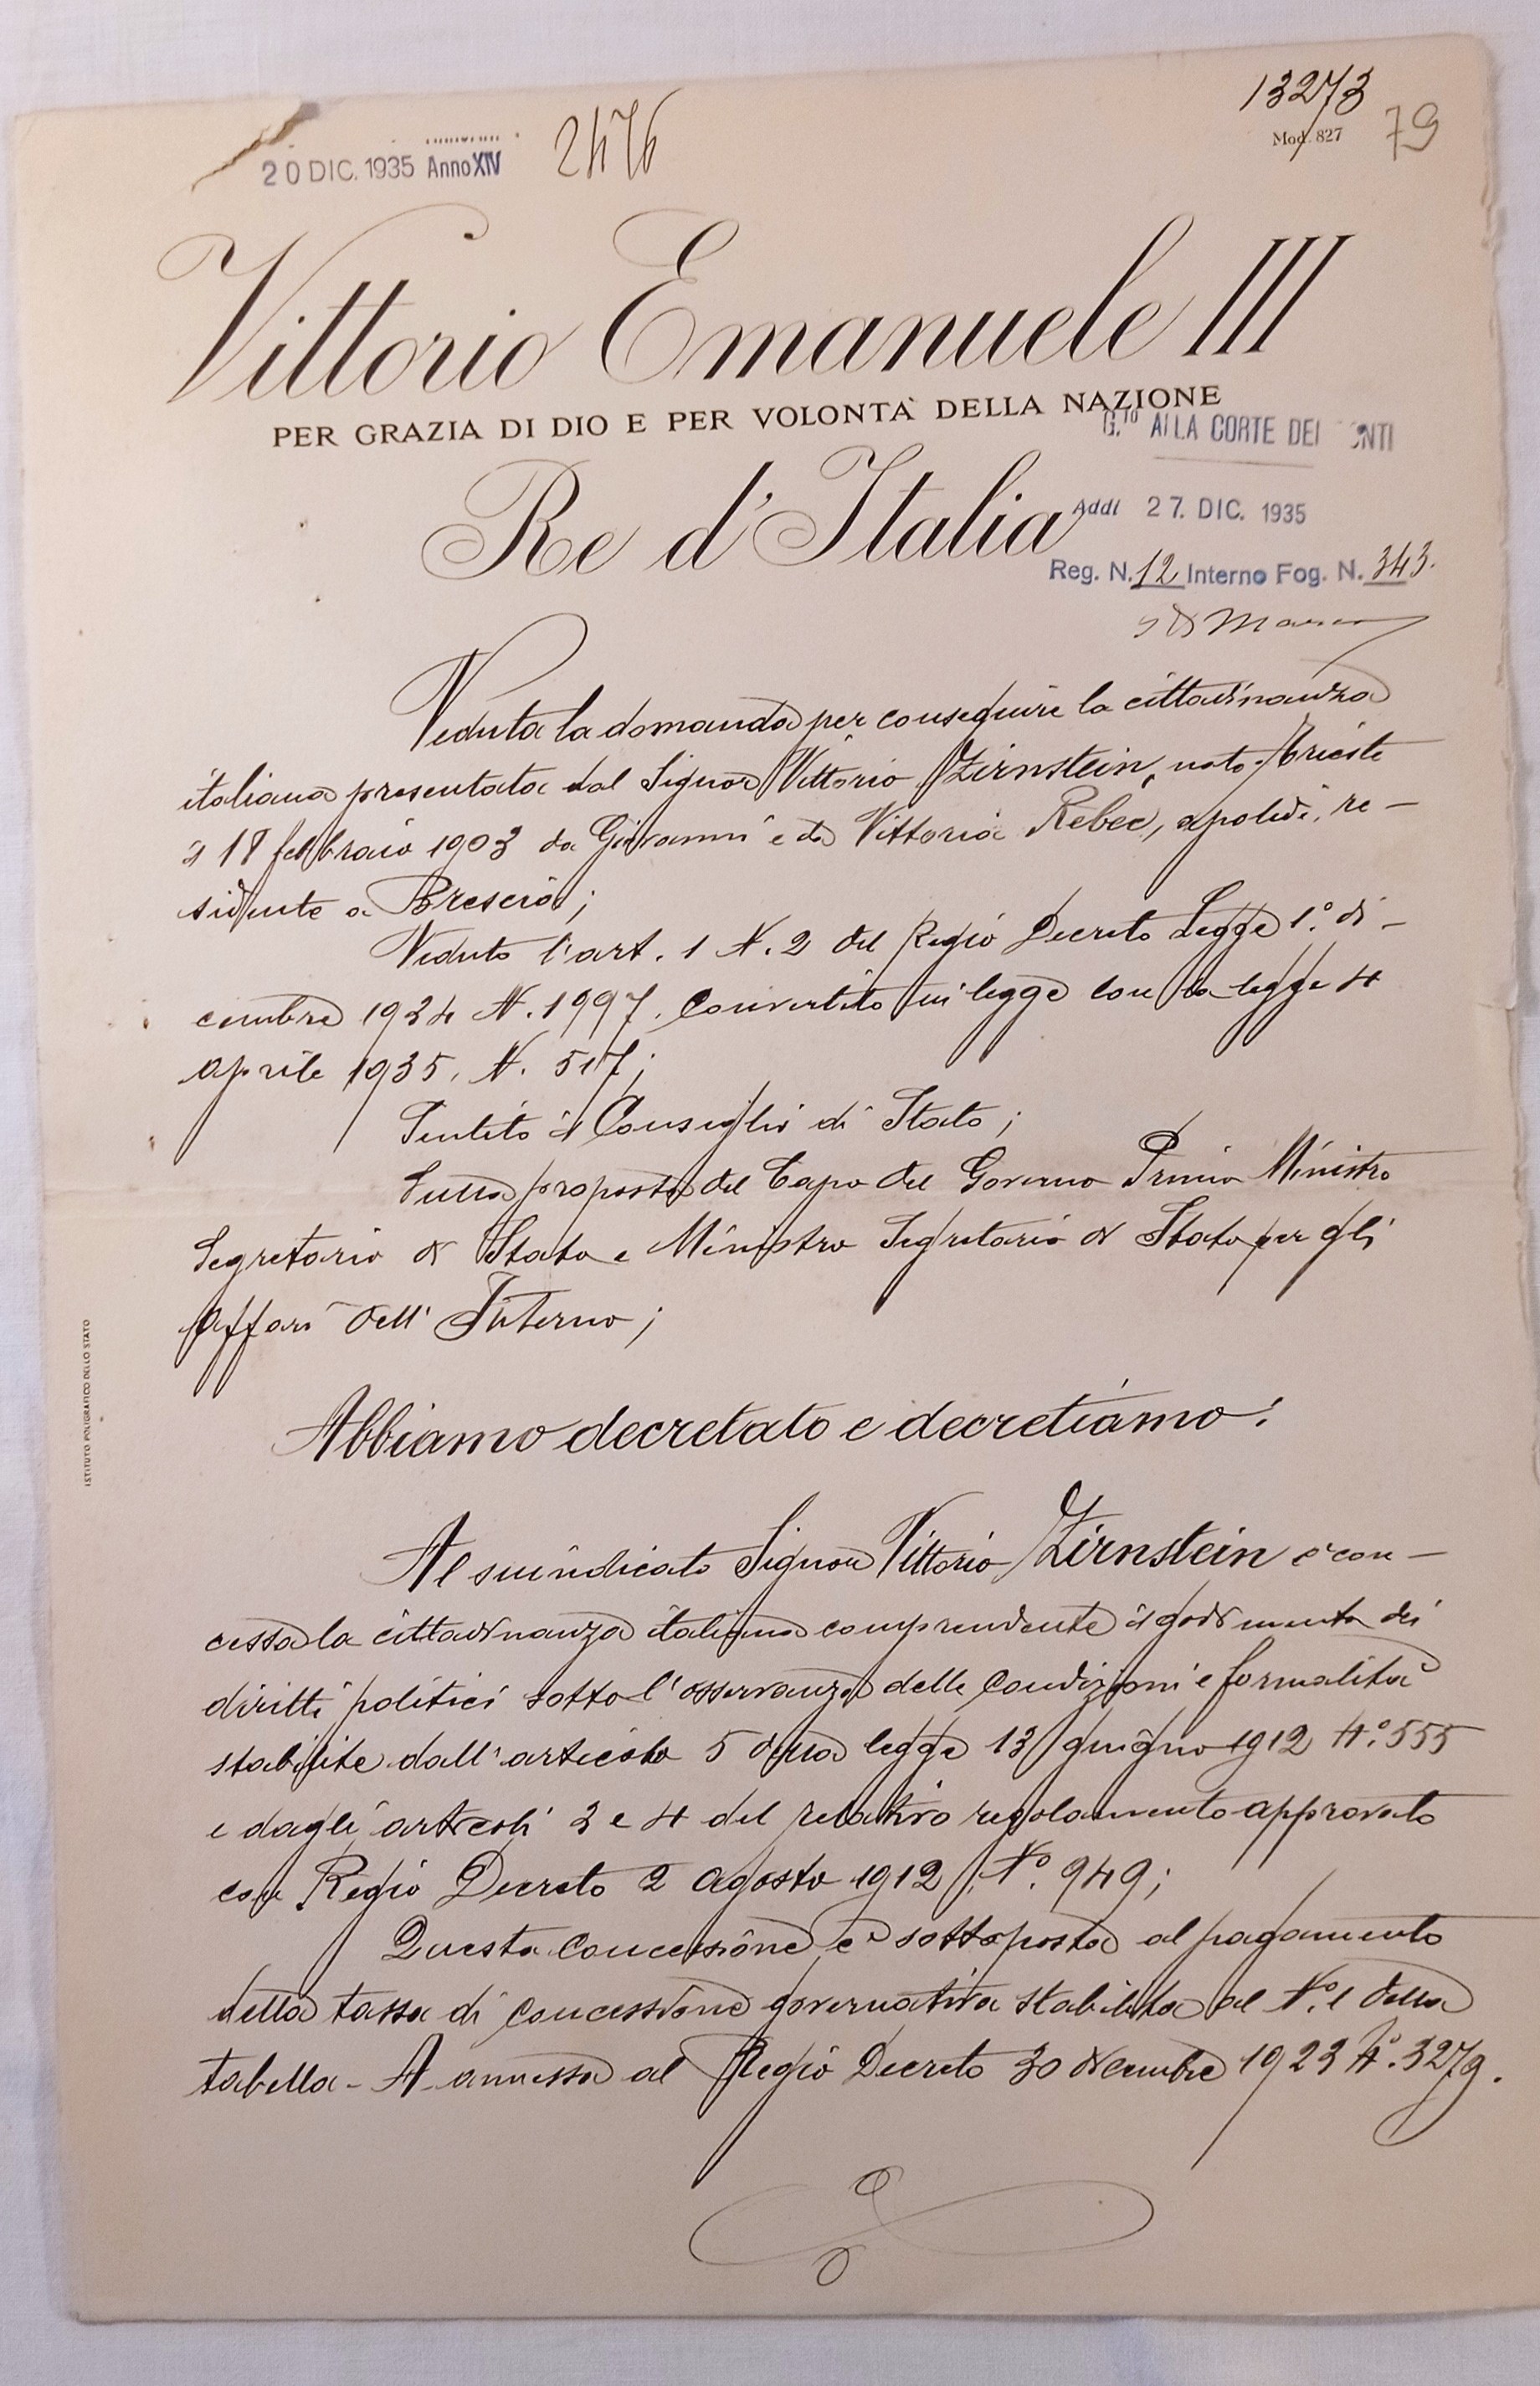 13273
Mod. 827
79
20 DIC. 1935 Anno XIV
2476
Vittorio Emanuele III
PER GRAZIA DI DIO E PER VOLONTÀ DELLA NAZIONE
G.to ALLA CORTE DEI CONTI
Re d'Italia
Addì 27. DIC. 1935
Reg. N. 12 Interno Fog. N. 343.
Veduta la domanda per conseguire la cittadinanza
italiana presentata dal Signor Vittorio Zirnstein, nato a Trieste
il 18 febbraio 1903 da Giovanni e da Vittoria Rebec, apolidi, re-
sidente a Brescia;
Veduto l'art. 1 N. 2 del Regio Decreto Legge 1° di-
cembre 1934 N. 1997, convertito in legge con la legge 4
aprile 1935, N. 517;
Sentito il Consiglio di Stato;
Sulla proposta del Capo del Governo Primo Ministro
Segretario di Stato e Ministro Segretario di Stato per gli
affari dell'Interno;
Abbiamo decretato e decretiamo:
Al suindicato Signor Vittorio Zirnstein è con-
cessa la cittadinanza italiana comprendente il godimento dei
diritti politici sotto l'osservanza delle condizioni e formalità
stabilite dall'articolo 5 della legge 13 giugno 1912 N.° 555
e dagli articoli 3 e 4 del relativo regolamento approvato
con Regio Decreto 2 agosto 1912, N.° 949;
Questa concessione è sottoposta al pagamento
della tassa di concessione governativa stabilita al N.° 1 della
tabella - A - annessa al Regio Decreto 30 dicembre 1923 N.° 3279.
ISTITUTO POLIGRAFICO DELLO STATO